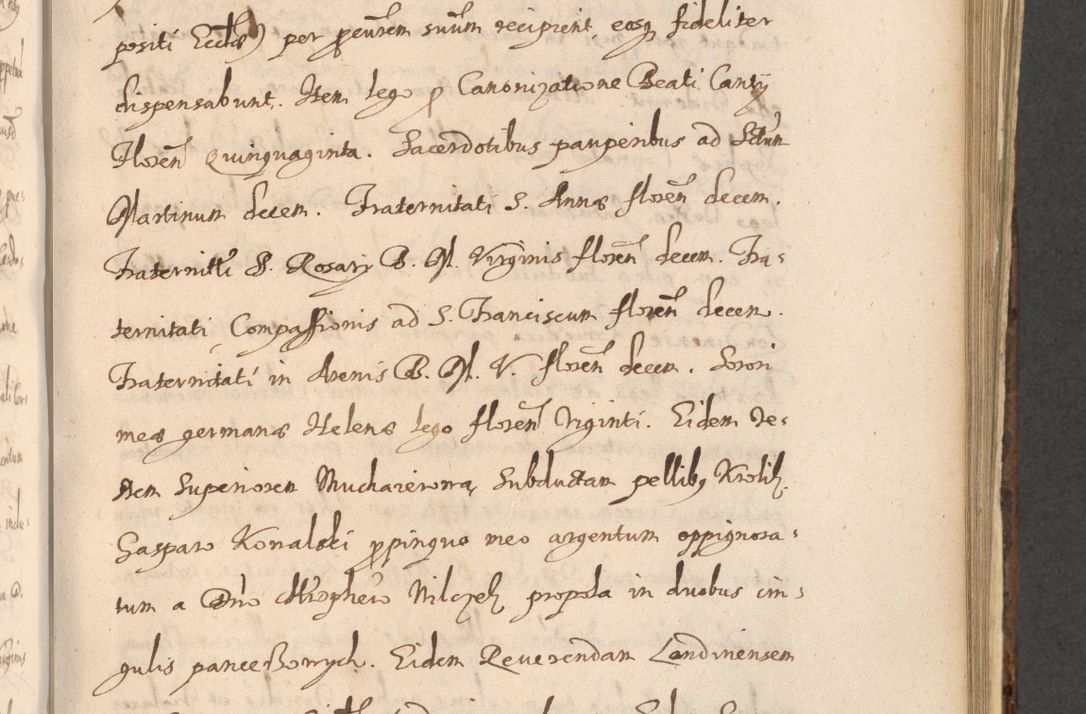 positi Eccl̃æ) per p̱curẽm suũm recipient, easq̃ fideliter
dispensabunt. Item lego p̱ Canonizatione Beati Cantÿ
Floreñ Quinquaginta. Sacerdotibus pauperibus ad Sctum
Martinum decem. Fraternitati S. Annæ floreñ decem.
Fraternitti S. Rosarÿ B. M. Virginis floreñ decem. Fra-
ternitati Compassionis ad S. Franciscum floreñ decem.
Fraternitati in Arenis B. M. V. floreñ decem. Sorori
meæ germanæ Helenæ lego floreñ Viginti. Eidem Ve-
stem Superiorem Muchaierową Subductam pellibq Krolik.
Gasparo Konalski p̱pinquo meo argentum oppignora-
tum a Dno Chrzophero propola in duobus cin-
gulis pancerzowych. Eidem Reverendam Londinensem